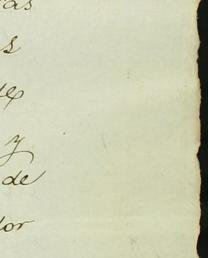 as
s
de
y
de
dor